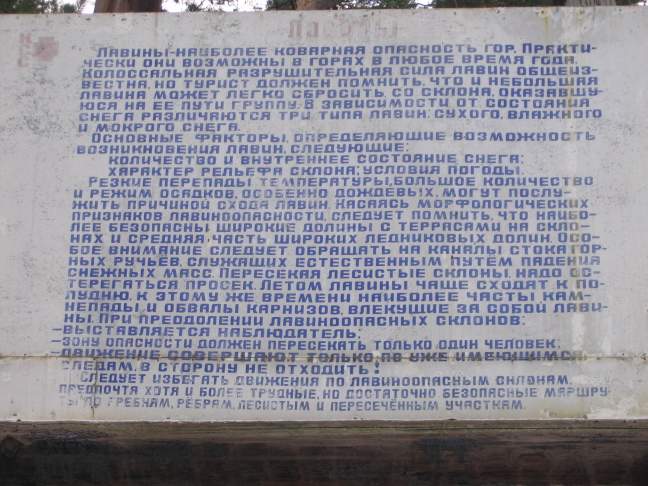 Лавины
Лавины-наиболее коварная опасность гор. Практи-
чески они возможны в горах в любое время года.
Колоссальная разрушительная сила лавин общеиз-
вестна, но турист должен помнить, что и небольшая
лавина может легко сбросить со склона, оказавшу-
юся на ее пути группу. В зависимости от состояния
снега различаются три типа лавин: сухого, влажного
и мокрого снега.
Основные факторы, определяющие возможность
возникновения лавин, следующие:
количество и внутреннее состояние снега;
характер рельефа склона; условия погоды.
Резкие перепады температуры, большое количество
и режим осадков, особенно дождевых, могут послу-
жить причиной схода лавин. Касаясь морфологических
признаков лавиноопасности, следует помнить, что наибо-
лее безопасны широкие долины с террасами на скло-
нах и средняя часть широких ледниковых долин. Осо-
бое внимание следует обращать на каналы стока гор-
ных ручьев, служащих естественным путем падения
снежных масс. Пересекая лесистые склоны, надо ос-
терегаться просек. Летом лавины чаще сходят к по-
лудню. К этому же времени наиболее часты кам-
непады, обвалы карнизов, влекущие за собой лави-
ны. При преодолении лавиноопасных склонов:
-выставляется наблюдатель;
-зону опасности должен пересекать только один человек;
-движение совершают только по уже имеющимся
следам, в сторону не отходить!
Следует избегать движения по лавиноопасным склонам,
предпочтя хотя и более трудные, но достаточно безопасные маршру-
ты по гребням, ребрам, лесистым и пересечённым участкам.